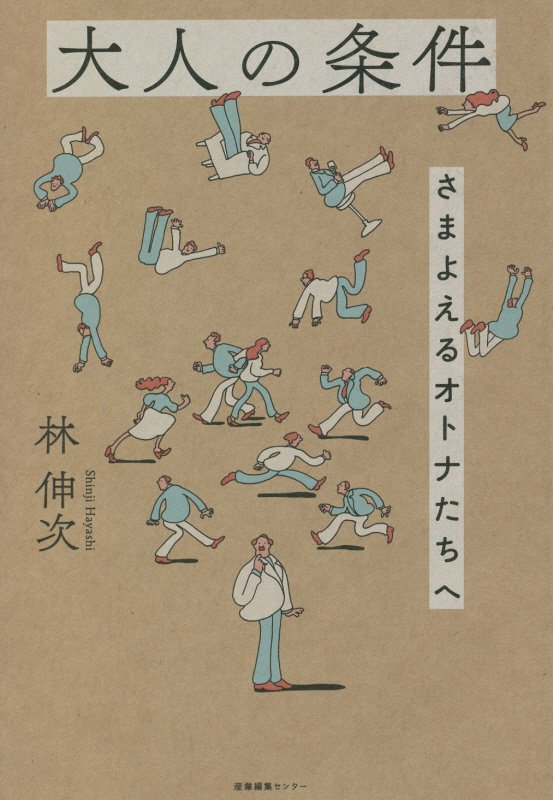 大人の条件
さまよえるオトナたちへ
林 伸次
Shinji Hayashi
産業編集センター